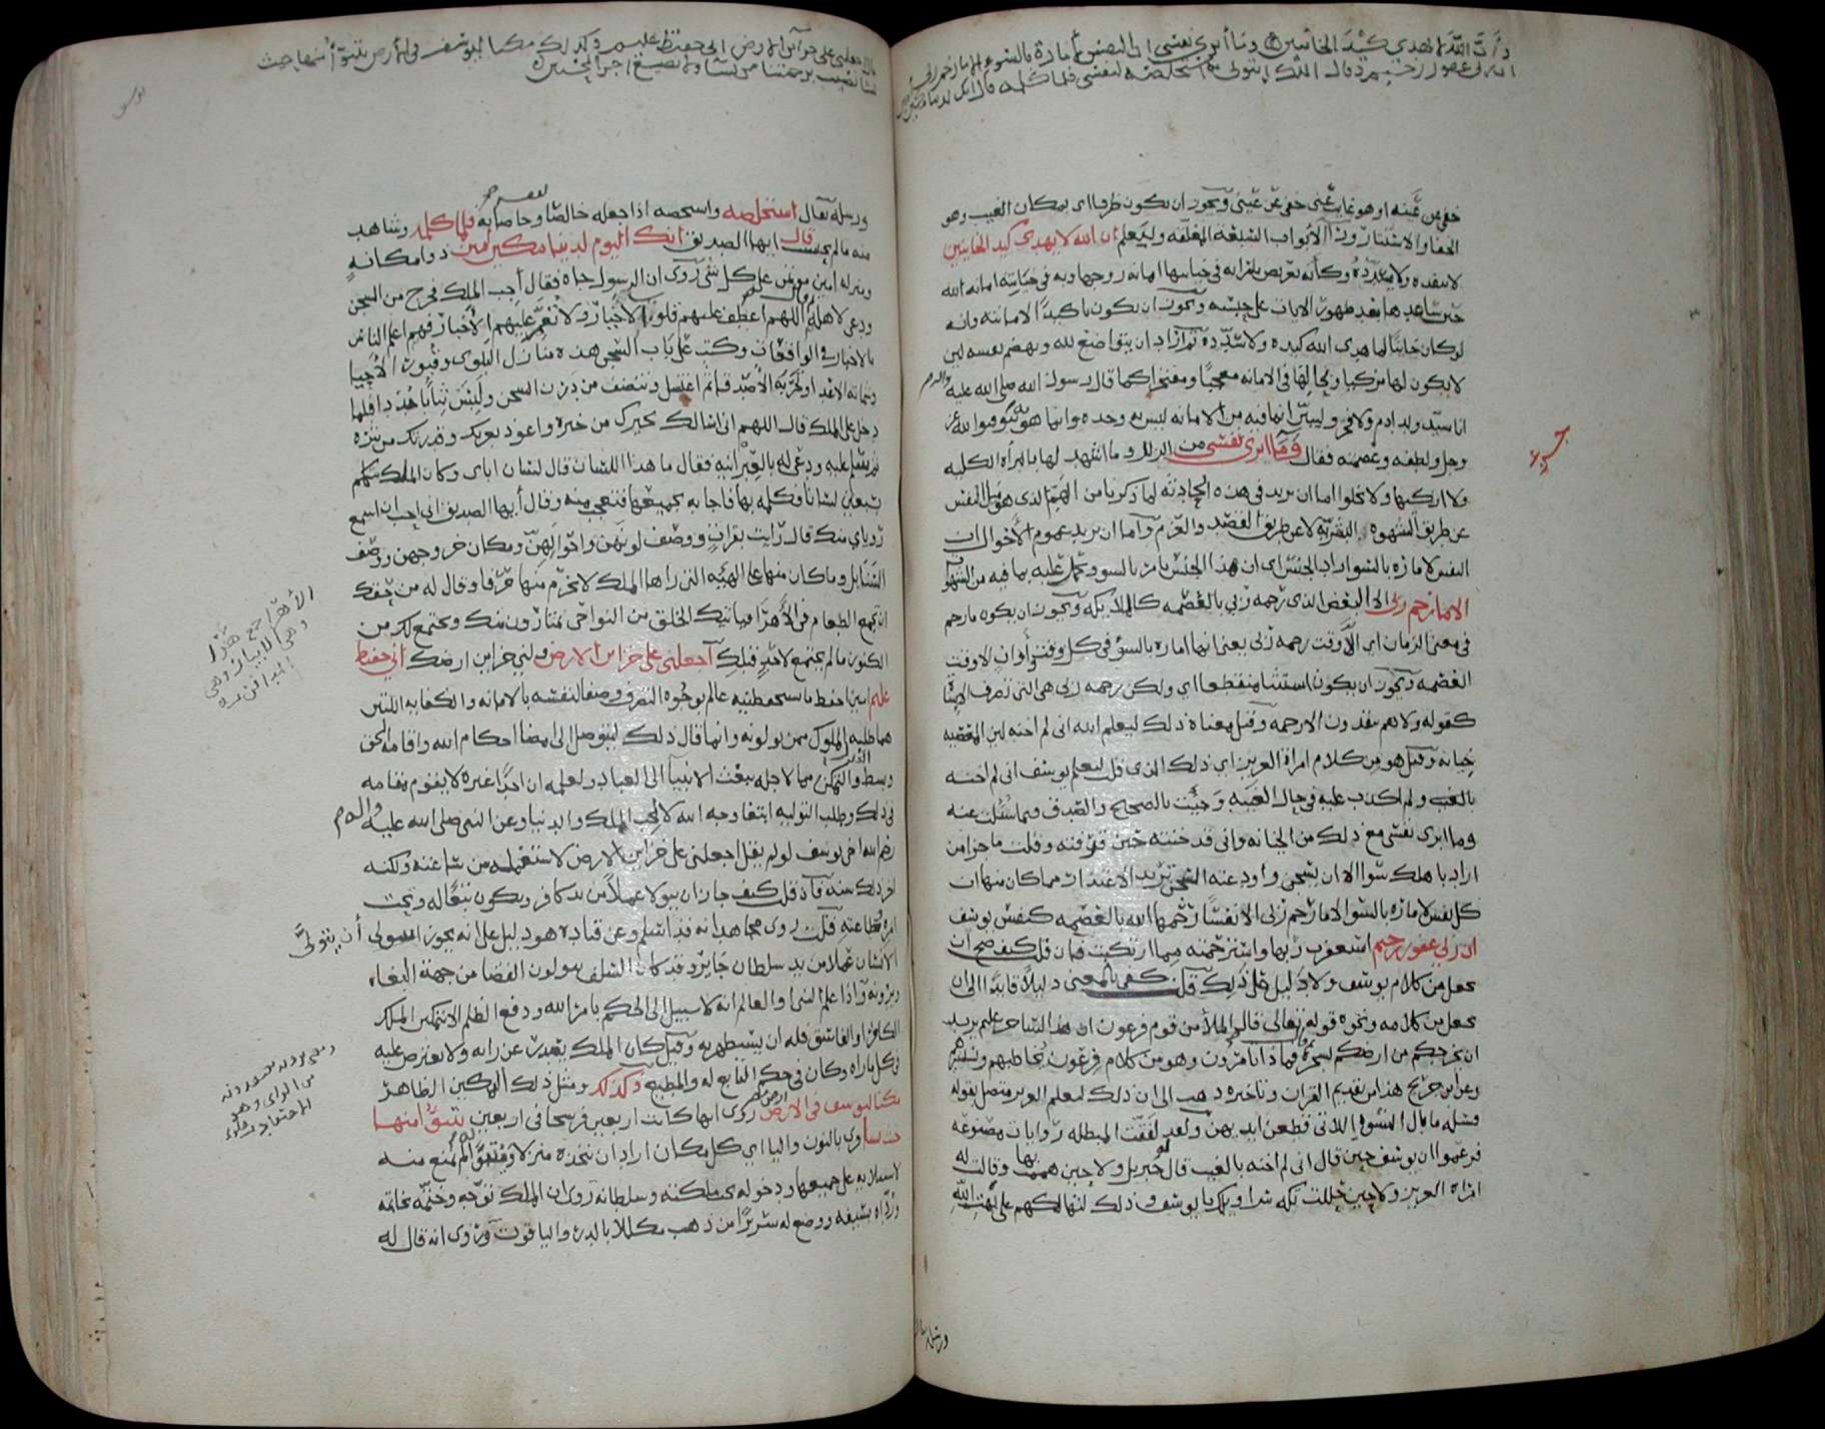 وَأَنَّ اللَّهَ لا يهدي كَيْدَ الخائنين وما أبرئ نفسي ان النفس لأمارة بالسوء الا ما رحم ربي
ان ربي غفور رحيم وقال الملك ائتوني به استخلصه لنفسي فلما كلمه قال انك لدينا مكين
خفي عن عينه او هو غايب عني خفي عن عيني ويجوز ان يكون ظرفا اي بمكان الغيب وهو
الخفا والاستتار ورا الأبواب السبعة المغلقة وليعلم ان الله لا يهدي كيد الخاينين
لا ينفذه ولا يسدده وكأنه تعريض بامراته في خيانتها امانة زوجها وبه في خيانته امانة الله
حين ساعدها بعد ظهور الايات على حبسه ويجوز ان يكون تاكيدا لامانته وانه
لو كان خاينا لما هدى الله كيده ولا سدده ثم اراد ان يتواضع لله ويهضم نفسه لين
لا يكون لها مزكيا وبحالها في الامانه معجبا ومفتخرا كما قال رسول الله صلى الله عليه واله وسلم
انا سيد ولد ادم ولا فخر وليبين ان ما فيه من الامانه ليس به وحده وانما هو بتوفيق الله عز
وجل ولطفه وعصمته فقال وما ابرئ نفسي من الزلل وما اشهد لها بالبرأة الكليه
ولا ازكيها ولا يخلوا اما ان يريد في هذه الحادثة لما ذكرنا من الهم الذي هو ميل النفس
عن طريق الشهوه البشرية لا عن طريق القصد والعزم واما ان يريد عموم الأحوال ان
النفس لامارة بالسوء اراد الجنس اي ان هذا الجنس يامر بالسوء ويحمل عليه بما فيه من الشهوات
الا ما رحم ربي الا البعض الذي رحمه ربي بالعصمه كالملايكه ويجوز ان يكون ما رحم
في معنى الزمان اي الا وقت رحمه ربي يعني انها اماره بالسوء في كل وقت وأوان الا وقت
العصمه ويجوز ان يكون استثنا منقطعا اي ولكن رحمه ربي هي التي تصرف الاساة
كقوله ولا هم ينقذون الا رحمه وقيل معناه ذلك ليعلم الله اني لم اخنه لان المعصيه
خيانه وقيل هو من كلام امراة العزيز اي ذلك الذي قلت ليعلم يوسف اني لم اخنه
بالغيب ولم اكذب عليه في حال الغيبه وَجئت بالصحيح والصدق فيما سئلت عنه
وما ابرئ نفسي مع ذلك من الخيانه واني قد خنته حين قرفته وقلت ما جزا من
اراد باهلك سوا الا ان يسجن واودعته السجن تريد الاعتذار مما كان منها ان
كل نفس لامارة بالسوء الا ما رحم ربي الا نفسا رحمها الله بالعصمه كنفس يوسف
ان ربي غفور رحيم استغفرت ربها واسترحمته مما ارتكبت فان قلت كيف صح ان
يجعل من كلام يوسف ولا دليل على ذلك قلت كفى بالمعنى دليلا قايدا الى ان
يجعل من كلامه ونحوه قوله تعالى قال الملأ من قوم فرعون ان هذا لساحر عليم يريد
ان يخرجكم من ارضكم بسحره فماذا تامرون وهو من كلام فرعون يخاطبهم ويستشيرهم
وعن ابن جريج هذا من تقديم القران وتاخيره ذهب الى ان ذلك ليعلم العزيز متصل بقوله
فسئله ما بال النسوة اللاتي قطعن ايديهن ولقد لفقت المبطله روايات مصنوعه
فزعموا ان يوسف حين قال اني لم اخنه بالغيب قال له جبريل ولا حين هممت بها وقالت له
امراة العزيز ولا حين حللت تكة سراويلك يا يوسف وذلك لتهالكهم على بهت الله
ورسله
قال اجعلني على خزاين الارض اني حفيظ عليم وكذلك مكنا ليوسف في الأرض يتبوأ منها حيث
يشا نصيب برحمتنا من نشا ولا نضيع اجر المحسنين
ورسله يقال استخلصه واستخصه اذا جعله خالصا وخاصا به لنفسه فلما كلمه وشاهد
منه ما لم يحتسب قال ايها الصديق انك اليوم لدينا مكين امين ذو امكانه
ومنزله امين مؤتمن على كل شي روى ان الرسول جاه فقال أجب الملك فخرج من السجن
ودعى لاهله وقال اللهم اعطف عليهم قلوب الأخيار ولا تعم عليهم الأخبار فهم اعلم الناس
بالاخبار في الواقعات وكتب على باب السجن هذه منازل البلوى وقبور الأحيا
وشماتة الاعدا وتجربة الأصدقا ثم اغتسل وتنظف من درن السجن ولبس ثيابا جددا فلما
دخل على الملك قال اللهم اني اسالك بخيرك من خيره واعوذ بعزتك وقدرتك من شره
ثم سلم عليه ودعى له بالعبرانيه فقال ما هذا اللسان قال لسان اباي وكان الملك يتكلم
بسبعين لسانا فكلمه بها فاجابه بجميعها فتعجب منه وقال أيها الصديق اني احب ان اسمع
رؤياي منك قال رأيت بقرات ووصف لونهن واحوالهن ومكان خروجهن ووصف
السنابل وما كان منها على الهيئه التي راها الملك لا يخرم منها حرفا وقال له من حقك
ان تجمع الطعام في الأهراء فياتيك الخلق من النواحي يمتارون منك ويجتمع لك من
الكنوز ما لم يجتمع لاحد قبلك اجعلني على خزاين الارض ولني خزاين ارضك اني حفيظ
عليم امين احفظ ما تستحفظنيه عالم بوجوه التصرف وصفا لنفسه بالامانه والكفايه اللتين
هما طلبة الملوك ممن يولونه وانما قال ذلك ليتوصل الى امضا احكام الله واقامة الحق
وبسط العدل والتمكن مما لاجله تبعث الانبيا الى العباد ولعلمه ان احدا غيره لا يقوم مقامه
في ذلك وطلب التوليه ابتغا وجه الله لا لحب الملك والدنيا وعن النبي صلى الله عليه واله وسلم
رحم الله اخي يوسف لو لم يقل اجعلني على خزاين الارض لاستعمله من ساعته ولكنه
اخر ذلك سنه فان قلت كيف جاز ان يتولا عملا من يد كافر ويكون تبعا له وتحت
امره وطاعته قلت روى مجاهد انه قد اسلم وعن قتاده هو دليل على انه يجوز أن يتولى
الانسان عملا من يد سلطان جاير وقد كان السلف يتولون القضا من جهة البغاه
ويرونه واذا علم النبي او العالم انه لا سبيل الى الحكم بامر الله ودفع الظلم الا بتمكين الملك
الكافر او الفاسق فله ان يستظهر به وقيل كان الملك يصدر عن رايه ولا يعترض عليه
في كل ما راه وكان في حكم التابع له والمطيع وكذلك ومثل ذلك التمكين الظاهر
مكنا ليوسف في الارض ارض مصر روى انها كانت اربعين فرسخا في اربعين يتبوأ منها
حيث يشا قرى بالنون واليا اي كل مكان اراد ان يتخذه منزلا ومتبوأ لم يمنع منه
لاستيلايه على جميعها ودخوله تحت ملكته وسلطانه روى ان الملك توجه وختمه بخاتمه
ورداه بسيفه ووضع له سريرا من ذهب مكللا بالدر والياقوت وروى انه قال له
الأهراء جمع هري